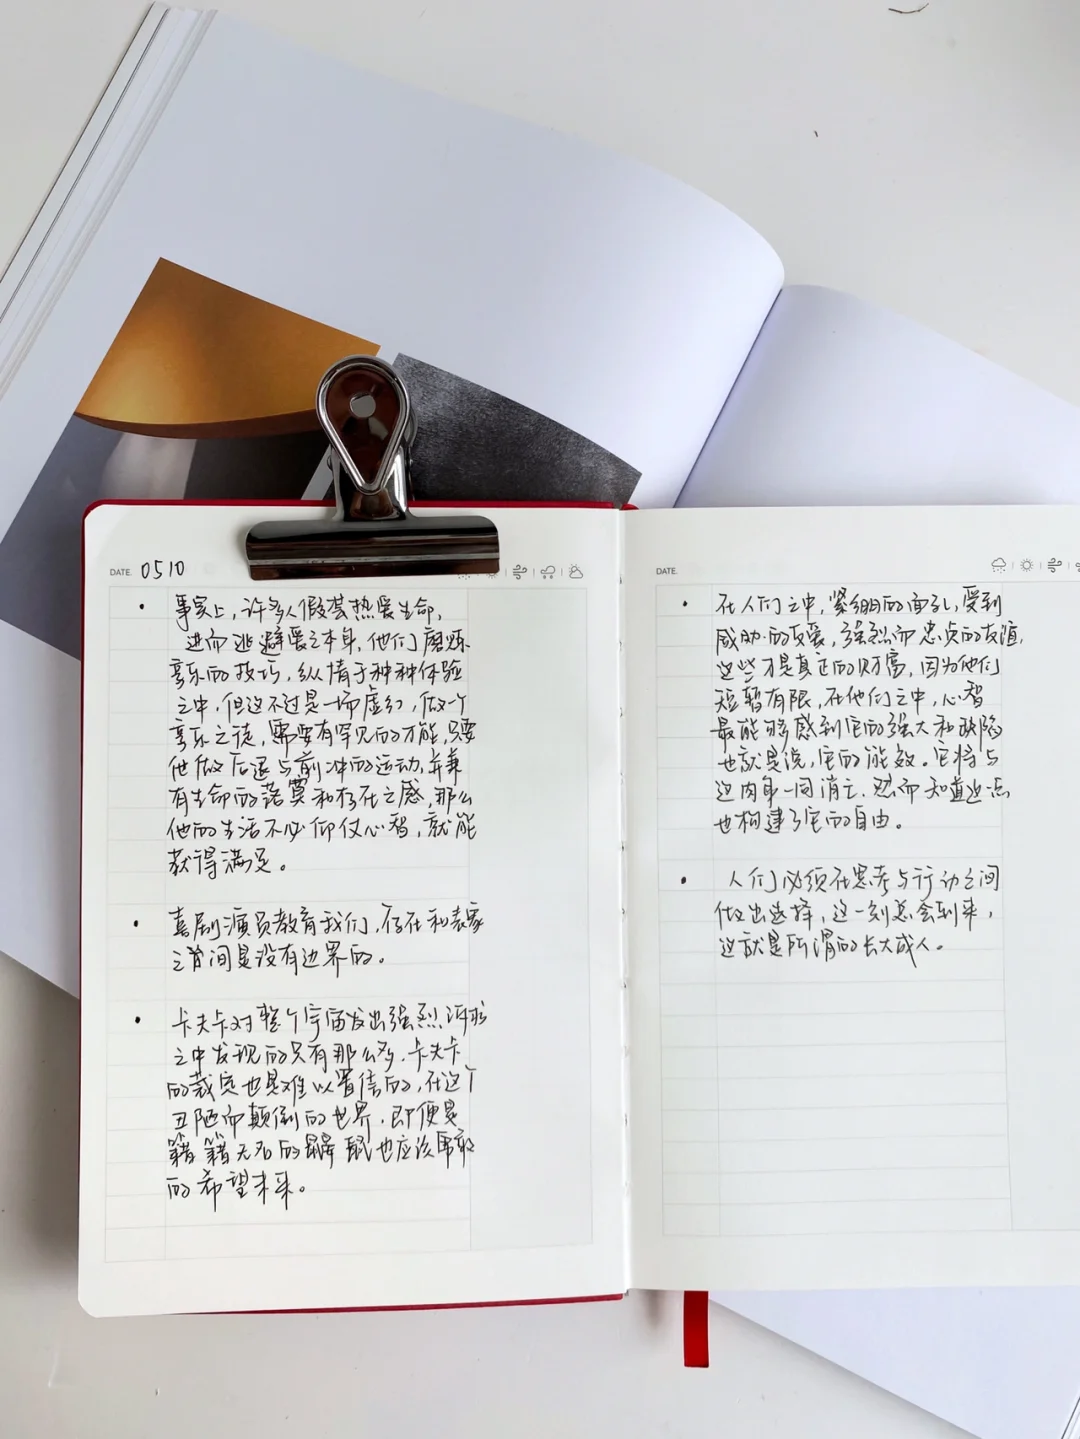 DATE. 0510
• 事实上，许多人假装热爱生命，
进而逃避爱之本身，他们磨练
享乐的技巧，纵情于种种体验
之中，但这不过是一场虚幻，做一个
享乐之徒，需要有罕见的才能，只要
他做后退与前冲的运动，并兼
有生命的落寞和存在之感，那么
他的生活不必仰仗心智，就能
获得满足。
• 喜剧演员教育我们，存在和表象
之前间是没有边界的。
• 卡夫卡对整个宇宙发出强烈诉求
之中发现的只有那么多，卡夫卡
的裁定也是难以置信的，在这个
丑陋而颠倒的世界，即便是
籍籍无名的鼹鼠也应该
的希望未来。
DATE.
• 在人们之中，紧绷的面孔，受到
威胁的友爱，强烈而忠贞的友谊，
这些才是真正的财富，因为他们
短暂有限，在他们之中，心智
最能够感到它的强大和缺陷
也就是说，它的能效。它将与
这肉身一同消亡，然而知道这一点
也构建了它的自由。
• 人们必须在思考与行动之间
做出选择，这一刻总会到来，
这就是所谓的长大成人。